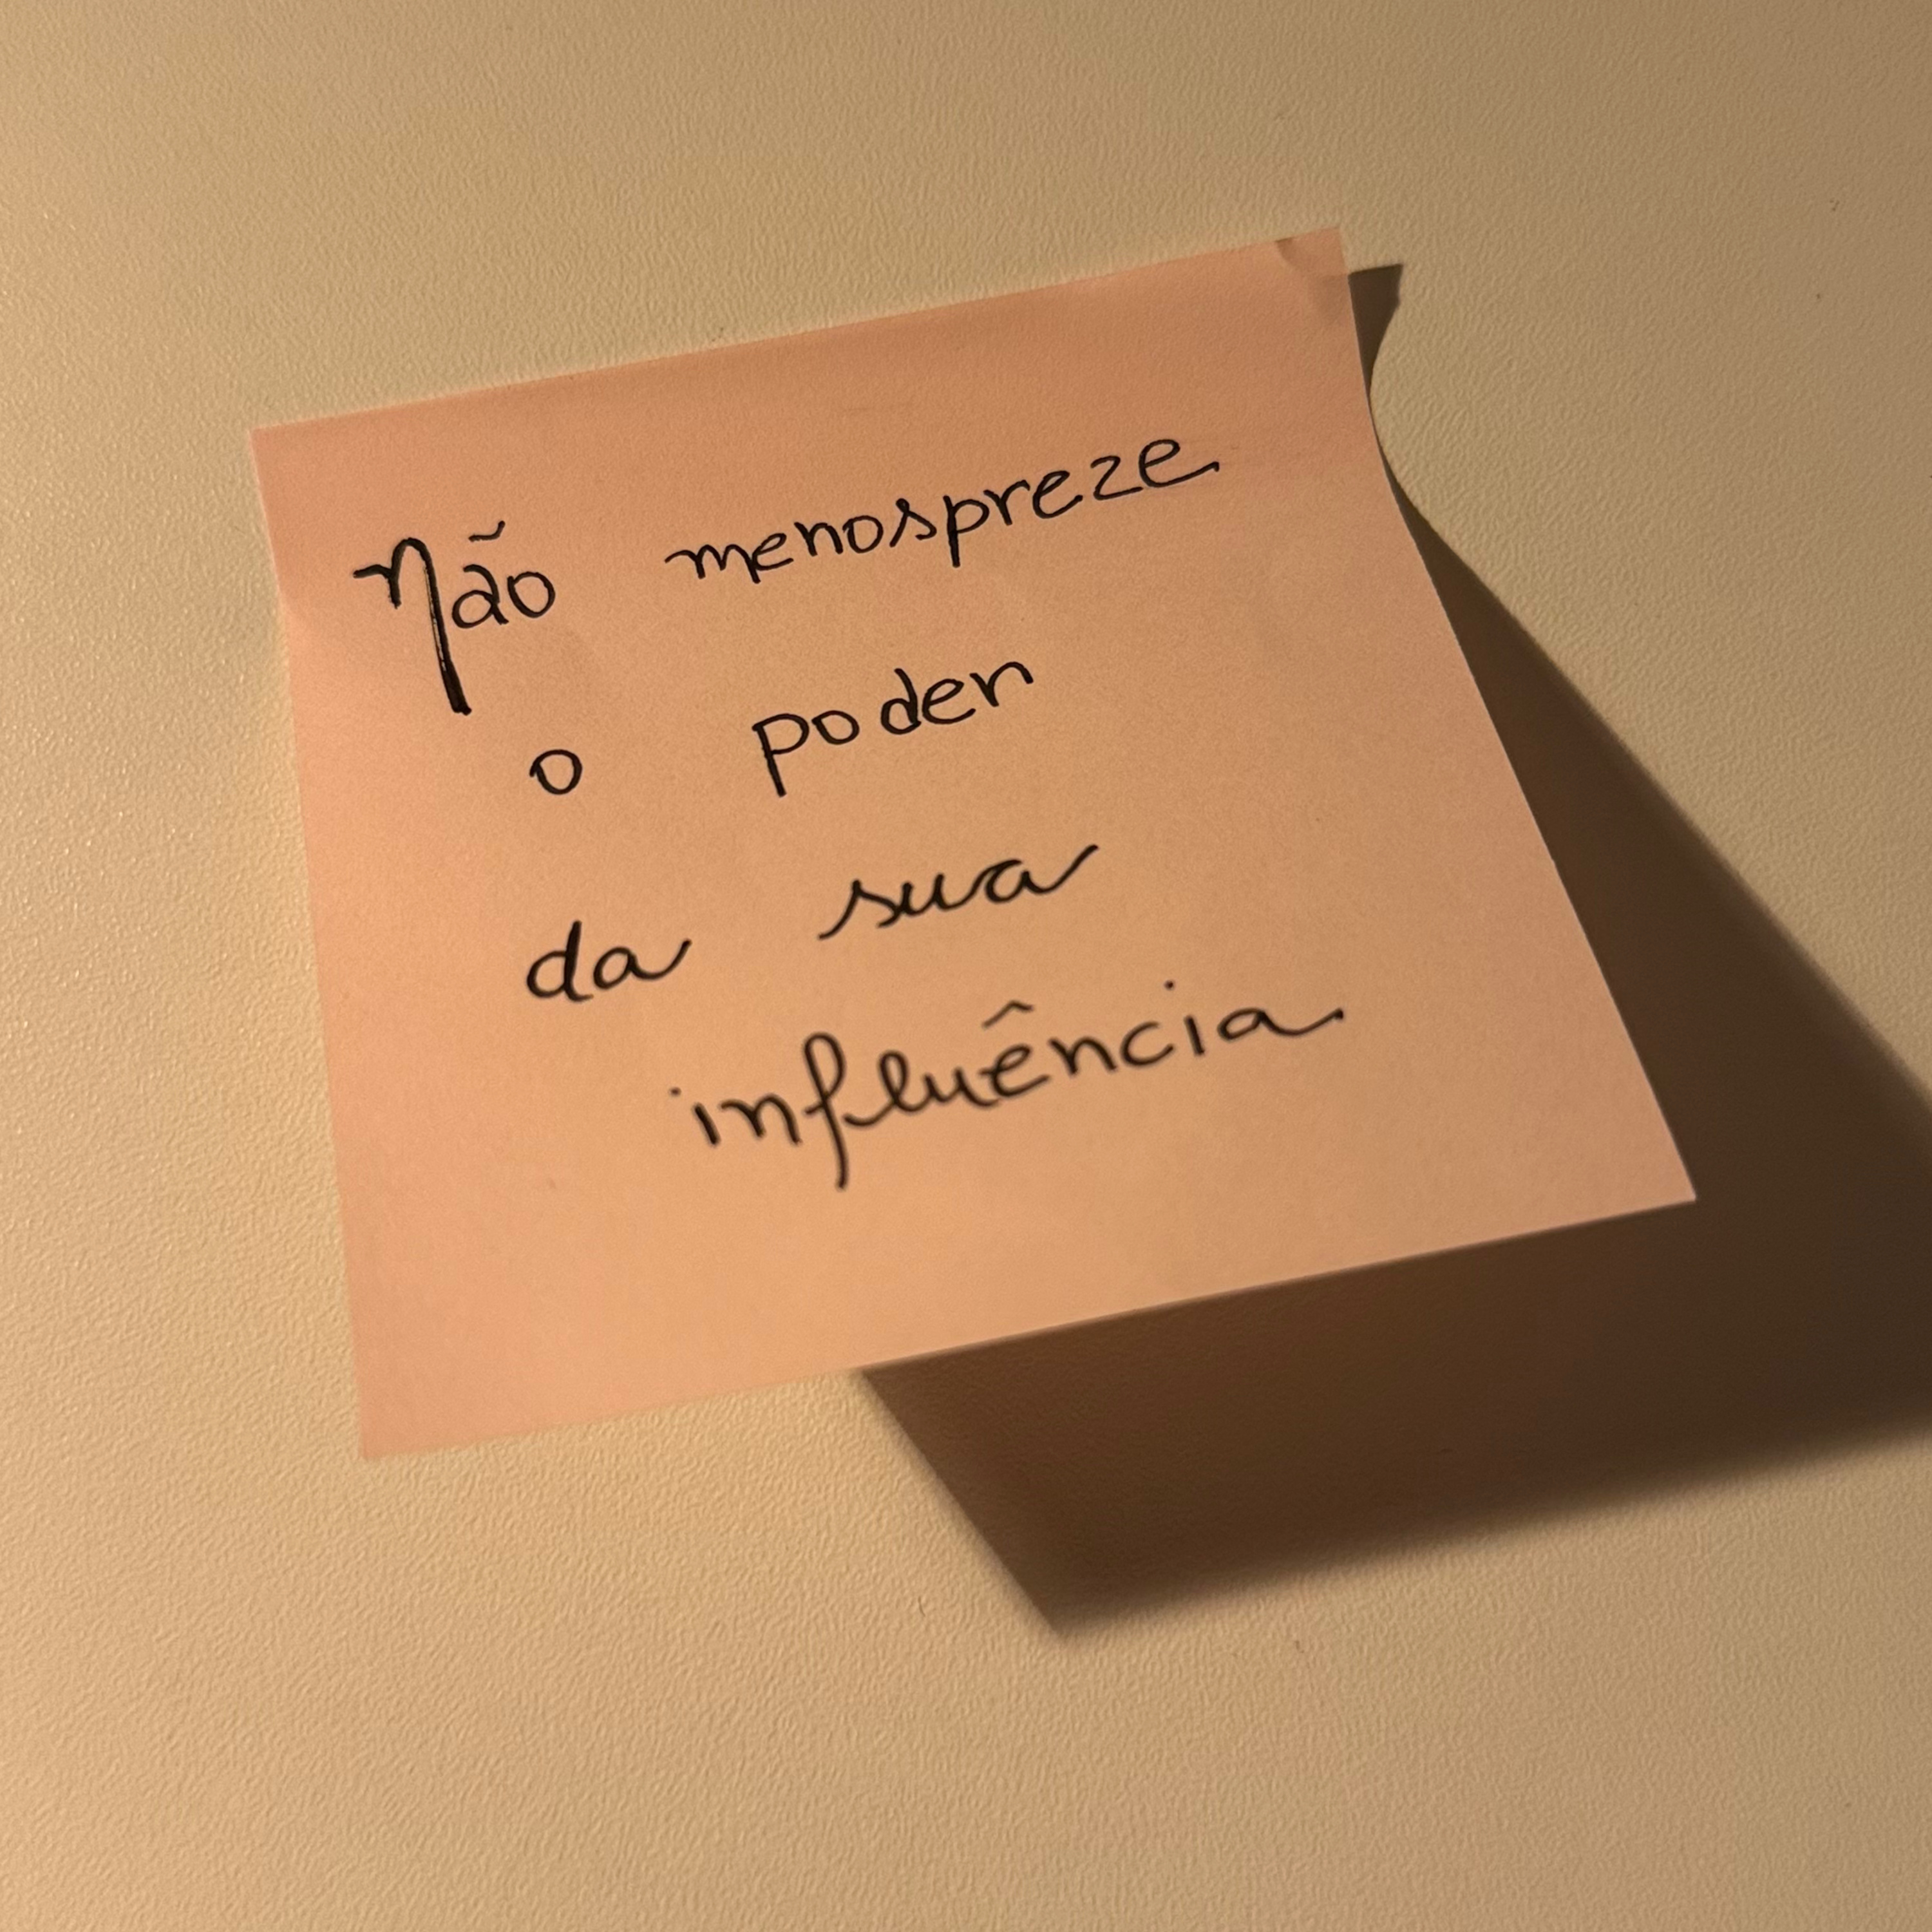 Não menospreze
o poder
da sua
influência